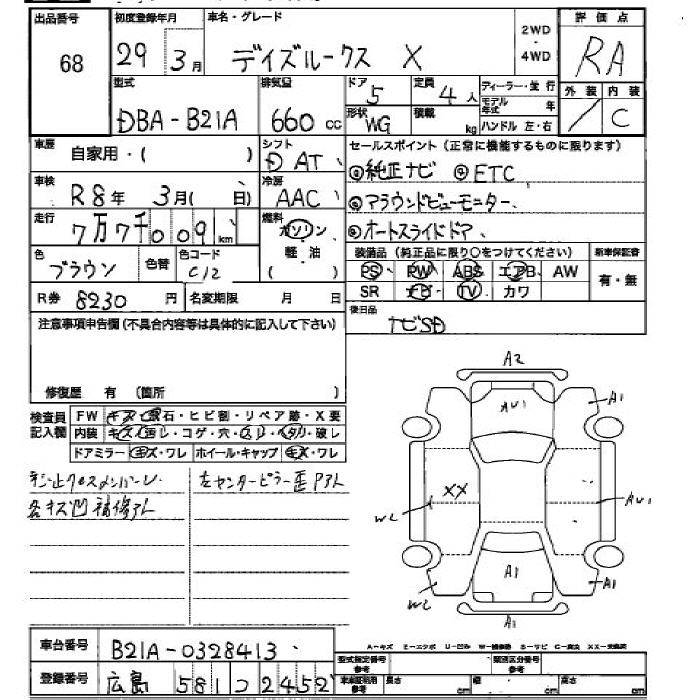 出品番号 初度登録年月 車名・グレード 2WD・4WD 評価点
68 29年 3月 デイズルークス X RA
型式 排気量 ドア 定員 ディーラー・並行 外装 内装
DBA-B21A 660cc 5 4人 モデル年式 年 / C
形状 WG 積載 kg ハンドル 左・右
車歴 自家用・( ) シフト D AT セールスポイント(正常に機能するものに限ります)
車検 R8年 3月( 日) 冷房 AAC ◎純正ナビ ◎ETC
◎アラウンドビューモニター、
走行 7万7千009km 燃料 ガソリン 軽油 ( )
◎オートスライドドア、
色 ブラウン 色替 色コード C12
装備品(純正品に限り○をつけてください) 新車保証書
PS PW ABS エアB AW 有・無
SR ナビ TV カワ
R券 8230円 名変期限 月 日
後日品 ナビSD
注意事項申告欄(不具合内容等は具体的に記入して下さい)
修復歴 有 (箇所 )
検査員記入欄 FW キズ・飛石・ヒビ割・リペア跡・X要
内装 キズ・汚レ・コゲ・穴・スリ・ヘタリ・破レ
ドアミラー キズ・ワレ ホイール・キャップ キズ・ワレ
左センターピラー歪アト
各キズ凹 補修アト
A2
AU1
A1
XX
W2
AU1
A1
W2
A1
A1
A-キズ E-エクボ U-凹み W-補修跡 S-サビ C-腐食 XX-交換済
車台番号 B21A-0328413
登録番号 広島 581 つ 2452
型式指定番号 参考 類別区分番号 参考
車車証明用 参考 長さ cm 幅 cm 高さ cm